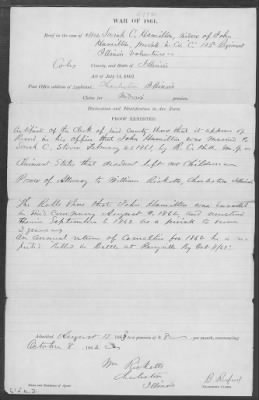 WAR OF 1861.
Brief in the case of Mrs Sarah C. Hamilton, widow of John
Hamilton, private in Co C. 123d Regiment
Illinois Volunteers
Coles County, and State of Illinois
Act of July 14, 1862.
Post Office address of Applicant: Charleston Illinois
Claim for Widow's pension.
Declaration and Identification in due form.
PROOF EXHIBITED.
Certificate of the Clerk of said County shows that it appears of
Record in his office that John Hamilton was married to
Sarah C. 1861, by
Claimant States that deceased left no Children
Power of Attorney to William Ricketts, Charleston Illinois
The Rolls show that John Hamilton was enrolled
in this Company August 1862, and mustered
therein September 6 1862 as a private to serve
3 years
An annual return of Casualties for 1862 he is re-
ported Killed in Battle at Perryville Ky Oct 8/62.
Admitted August 17 1863 to a pension of $8 per month, commencing
October 8 1862
Wm Ricketts
Charleston
Illinois
Examining Clerk.